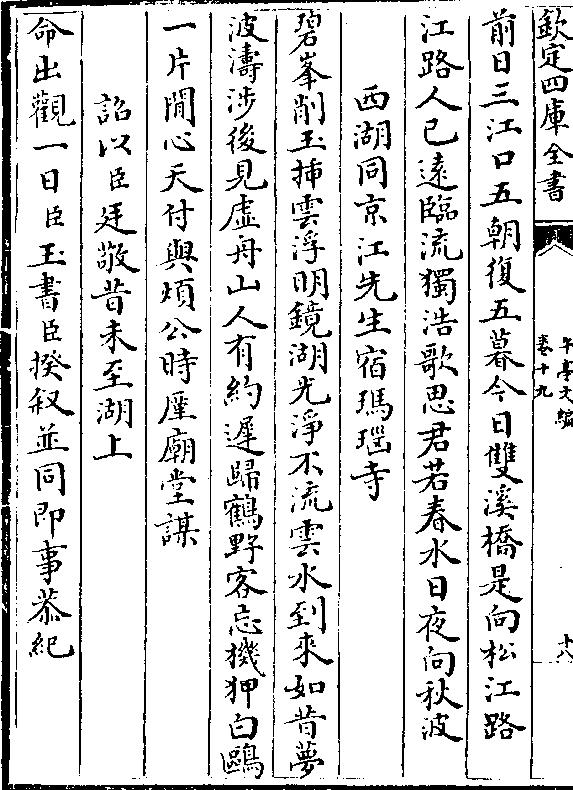 欽定四庫全書
午亭文編
卷十九
十八
前日三江口五朝復五暮今日雙溪橋是向松江路
江路人已遠臨流獨浩歌思君若春水日夜向秋波
西湖同京江先生宿瑪瑙寺
碧峯削玉插雲浮明鏡湖光淨不流雲水到來如昔夢
波濤涉後見虛舟山人有約遲歸鶴野客忘機狎白鷗
一片閒心天付與煩公時廑廟堂謀
詔以臣廷敬昔未至湖上
命出觀一日臣玉書臣揆叙並同即事恭紀